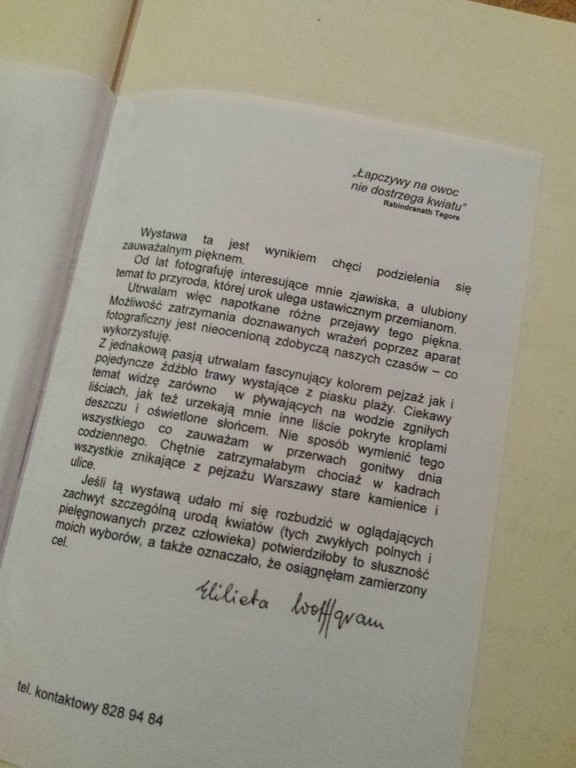 „Łapczywy na owoc
nie dostrzega kwiatu"
Rabindranath Tagore
Wystawa ta jest wynikiem chęci podzielenia się
zauważalnym pięknem.
Od lat fotografuję interesujące mnie zjawiska, a ulubiony
temat to przyroda, której urok ulega ustawicznym przemianom.
Utrwalam więc napotkane różne przejawy tego piękna.
Możliwość zatrzymania doznawanych wrażeń poprzez aparat
fotograficzny jest nieocenioną zdobyczą naszych czasów – co
wykorzystuję.
Z jednakową pasją utrwalam fascynujący kolorem pejzaż jak i
pojedyncze źdźbło trawy wystające z piasku plaży. Ciekawy
temat widzę zarówno w pływających na wodzie zgniłych
liściach, jak też urzekają mnie inne liście pokryte kroplami
deszczu i oświetlone słońcem. Nie sposób wymienić tego
wszystkiego co zauważam w przerwach gonitwy dnia
codziennego. Chętnie zatrzymałabym chociaż w kadrach
wszystkie znikające z pejzażu Warszawy stare kamienice i
ulice.
Jeśli tą wystawą udało mi się rozbudzić w oglądających
zachwyt szczególną urodą kwiatów (tych zwykłych polnych i
pielęgnowanych przez człowieka) potwierdziłoby to słuszność
moich wyborów, a także oznaczało, że osiągnęłam zamierzony
cel.
Elżbieta Wolffgram
tel. kontaktowy 828 94 84